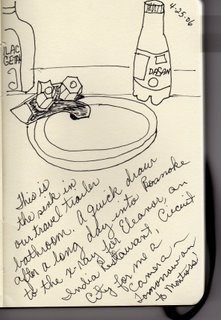 4-25-06
ILAC
GETA
DASAN
This is
the sink in
our travel trailer
bathroom. A quick draw
after a long day into Roanoke
to the x-ray for Eleanor, an
India Restaurant, Circuit
City for me a
Camera –
Tomorrow on
to